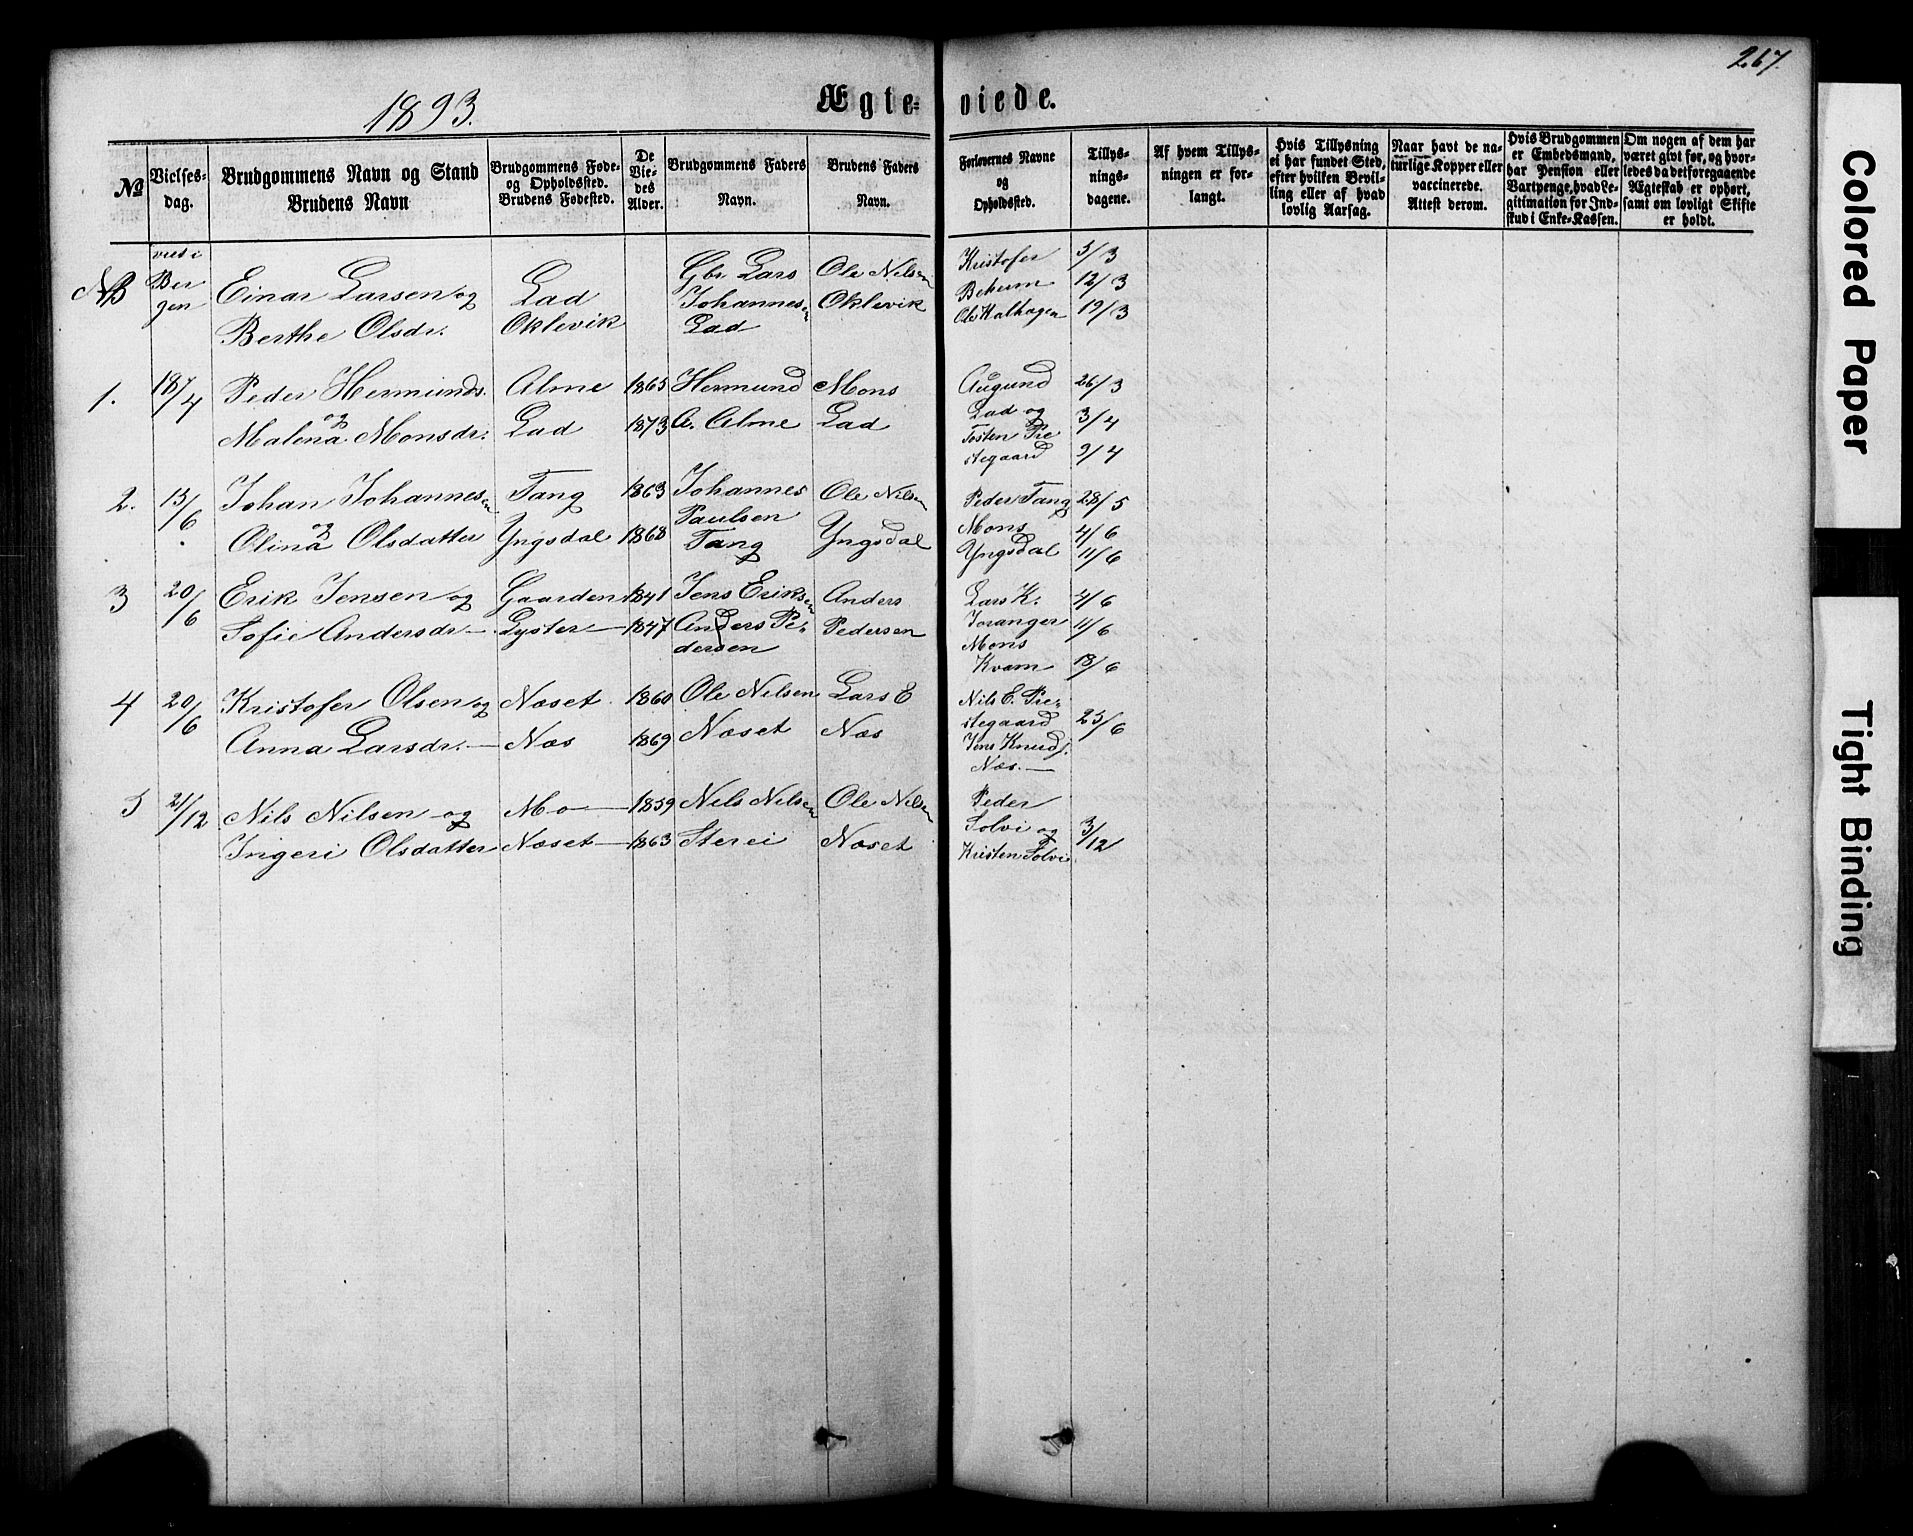 267.
1893.
Ægte- viede.
№
Vielses-
dag.
Brudgommens Navn og Stand
Brudens Navn
Brudgommens Føde-
og Opholdssted.
Brudens Fødested.
De
Vie-
des
Alder.
Brudgommens Faders
Navn.
Brudens Faders
Navn.
Forlovernes Navne
og
Opholdssted.
Tillys-
nings-
dagene.
Af hvem Tillys-
ningen er for-
langt.
Hvis Tillysning
ei har fundet Sted,
efter hvilken Bevil-
ling eller af hvad
lovlig Aarsag.
Naar havt de na-
turlige Kopper eller
vaccinerede.
Attest derom.
Hvis Brudgommen
er Embedsmand,
har Pension eller
Vartpenge, hvad Le-
gitimation for Ind-
skud i Enke-Kassen.
Om nogen af dem har
været givt før, og hvor-
ledes da det foregaaende
Ægteskab er ophørt,
samt om lovligt Skifte
er holdt.
NB
vied i
Ber
gen
Einar Larsen og
Berthe Olsdr.
Lad
Oklevik
Gbr. Lars
Johannesen
Lad
Ole Nilsen
Oklevik
Kristofer
Ole Kalhagen
5/3
12/3
19/3
1.
/4
Peder Hermunds.
og
Malena Monsdr.
Alme
Lad
1865
1873
Hermund
A. Alme
Mons
Lad
Augund
Lad og
Tosten Pre
stegaard
26/3
3/4
9/4
2.
13/6
Johan Johannesen
og
Olina Olsdatter
Tang
Yngsdal
1863
1868
Johannes
Paulsen
Tang
Ole Nilsen
Yngsdal
Peder Tang
Mons
Yngsdal
28/5
4/6
11/6
3
20/6
Erik Jensen og
Sofie Andersdr.
Gaarden
Lyster
1841
1847
Jens Eriksen
Anders Pe-
dersen
Anders
Pedersen
Lars K.
Joranger
Mons
Kvam
4/6
11/6
18/6
4
20/6
Kristofer Olsen og
Anna Larsdr.
Næset
Næs
1860
1869
Ole Nilsen
Næset
Lars E
Næs
Nils E. Pre-
stegaard
Jens Knuds.
Næs.
25/6
5
21/12
Nils Nilsen og
Ingeri Olsdatter
Mo
Næset
1859
1863
Nels Nilsen
Sterei
Ole Nilsen
Næset
Peder
Solvi og
Kristen Solvi
3/12
Colored Paper
Tight Binding